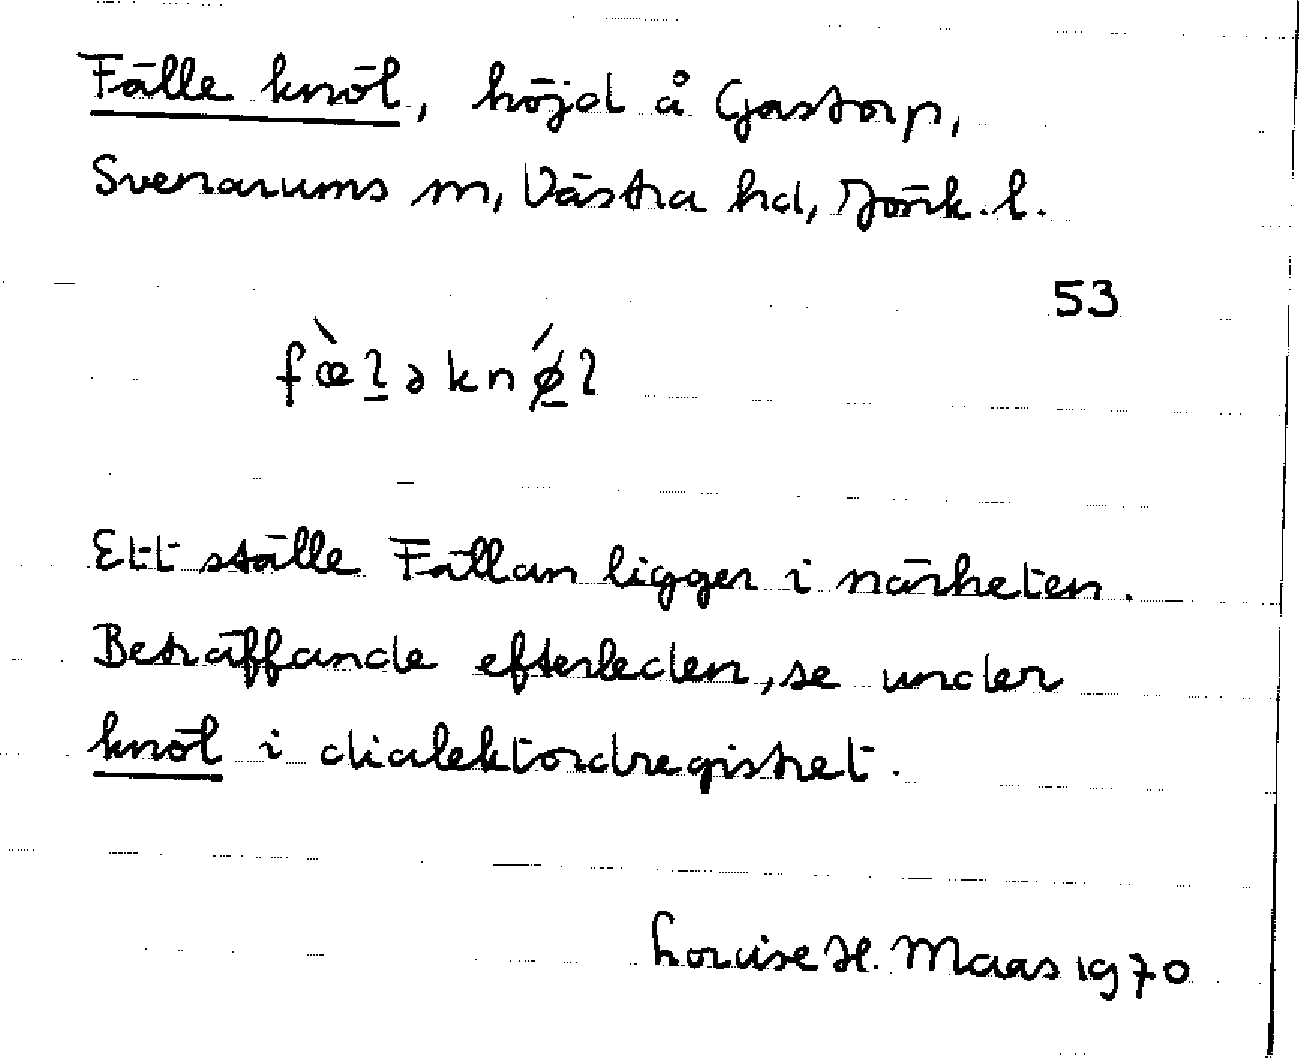 Fälle knöl, höjd å Gastorp,
Svenarums sn, Västra hd, Jönk. l.
53
fœ̀lәknǿl
Ett ställe Fällan ligger i närheten.
Beträffande efterleden, se under
knöl i dialektordregistret.
Louise H. Maas 1970